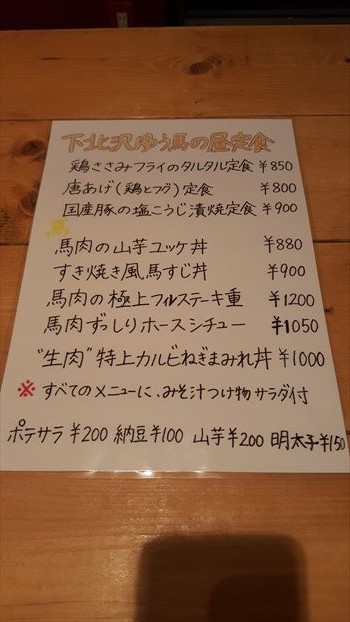 下北沢ゆう馬の昼定食
鶏ささみフライのタルタル定食 ¥850
唐あげ(鶏とフグ)定食 ¥800
国産豚の塩こうじ漬焼定食 ¥900
馬
馬肉の山芋ユッケ丼 ¥880
すき焼き風馬すじ丼 ¥900
馬肉の極上フィルステーキ重 ¥1200
馬肉ずっしりホースシチュー ¥1050
"生肉"特上カルビねぎまみれ丼 ¥1000
※ すべてのメニューに、みそ汁つけ物サラダ付
ポテサラ ¥200 納豆¥100 山芋¥200 明太子¥150